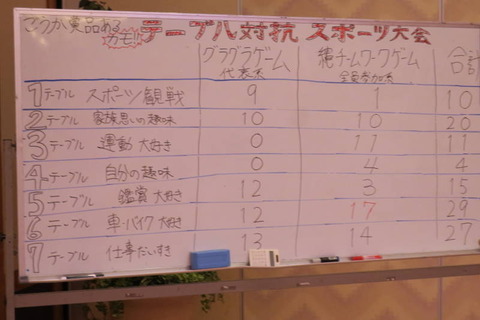 ごうか賞品ある
カモ!! テーブル対抗 スポーツ大会
グラグラゲーム 代表系 絆チームワークゲーム 全員参加系 合計
1テーブル スポーツ観戦 9 1 10
2テーブル 家族思いの趣味 10 10 20
3テーブル 運動大好き 0 11 11
4テーブル 自分の趣味 0 4 4
5テーブル 鑑賞大好き 12 3 15
6テーブル 車・バイク大好き 12 17 29
7テーブル 仕事だいすき 13 14 27